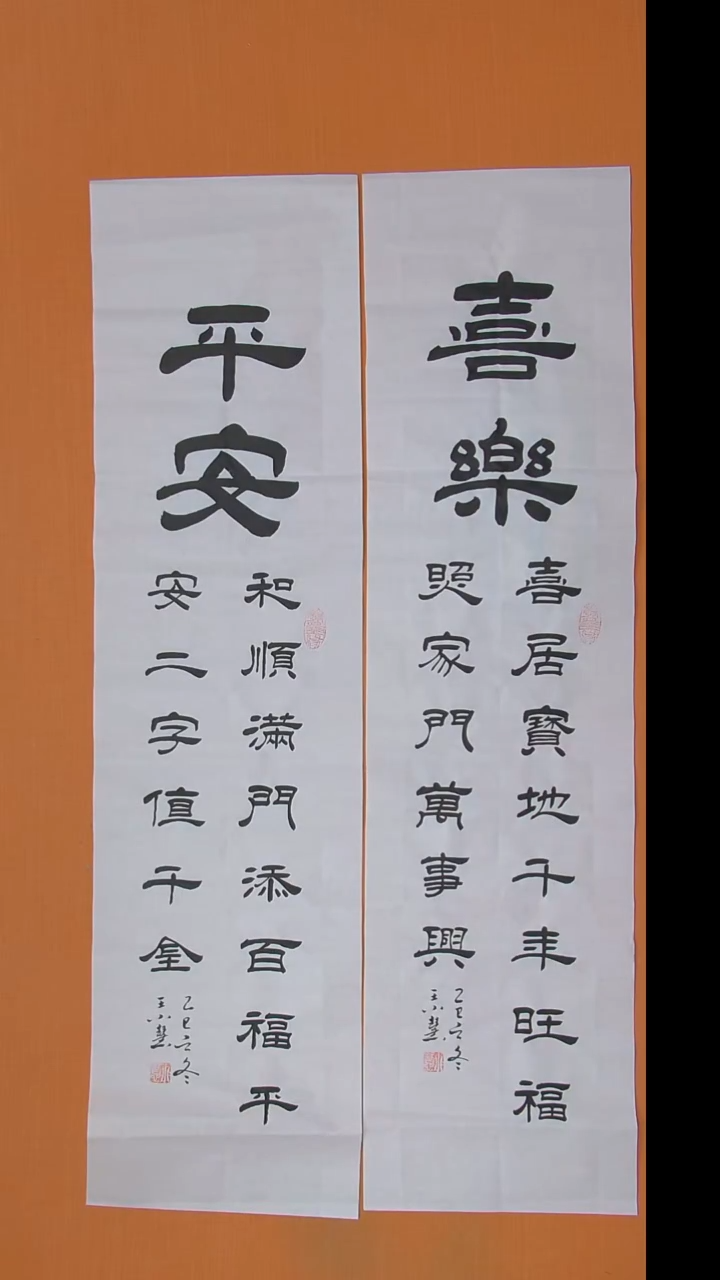 喜樂
喜居寳地千年旺福
照家門萬事興
乙巳立冬
王小慧
平安
和順滿門添百福平
安二字值千金
乙巳立冬
王小慧